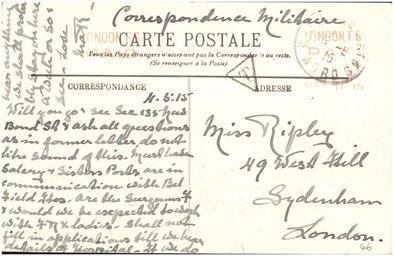 Correspondence Militaire
CARTE POSTALE
Tous les Pays étrangers n'acceptent pas la Correspondance au recto.
(Se renseigner à la Poste)
CORRESPONDANCE
ADRESSE
T
LONDON.E.S
4.5.15
Will you go & see See 135 New
Bond St & ask all questions
as in former letter do not
like sound of this. Must have
Salary & Sisters Posts are in
communication with Bel
Field Hos. are the Surgeons
& would we be expected to work
with & ladies. Shall not
fill in applications till we hear
details of Hospital. If we do
hear anything
we shall
stay on here
a week or so
see. Love
Miss Ripley
49 West Hill
Sydenham
London.
46